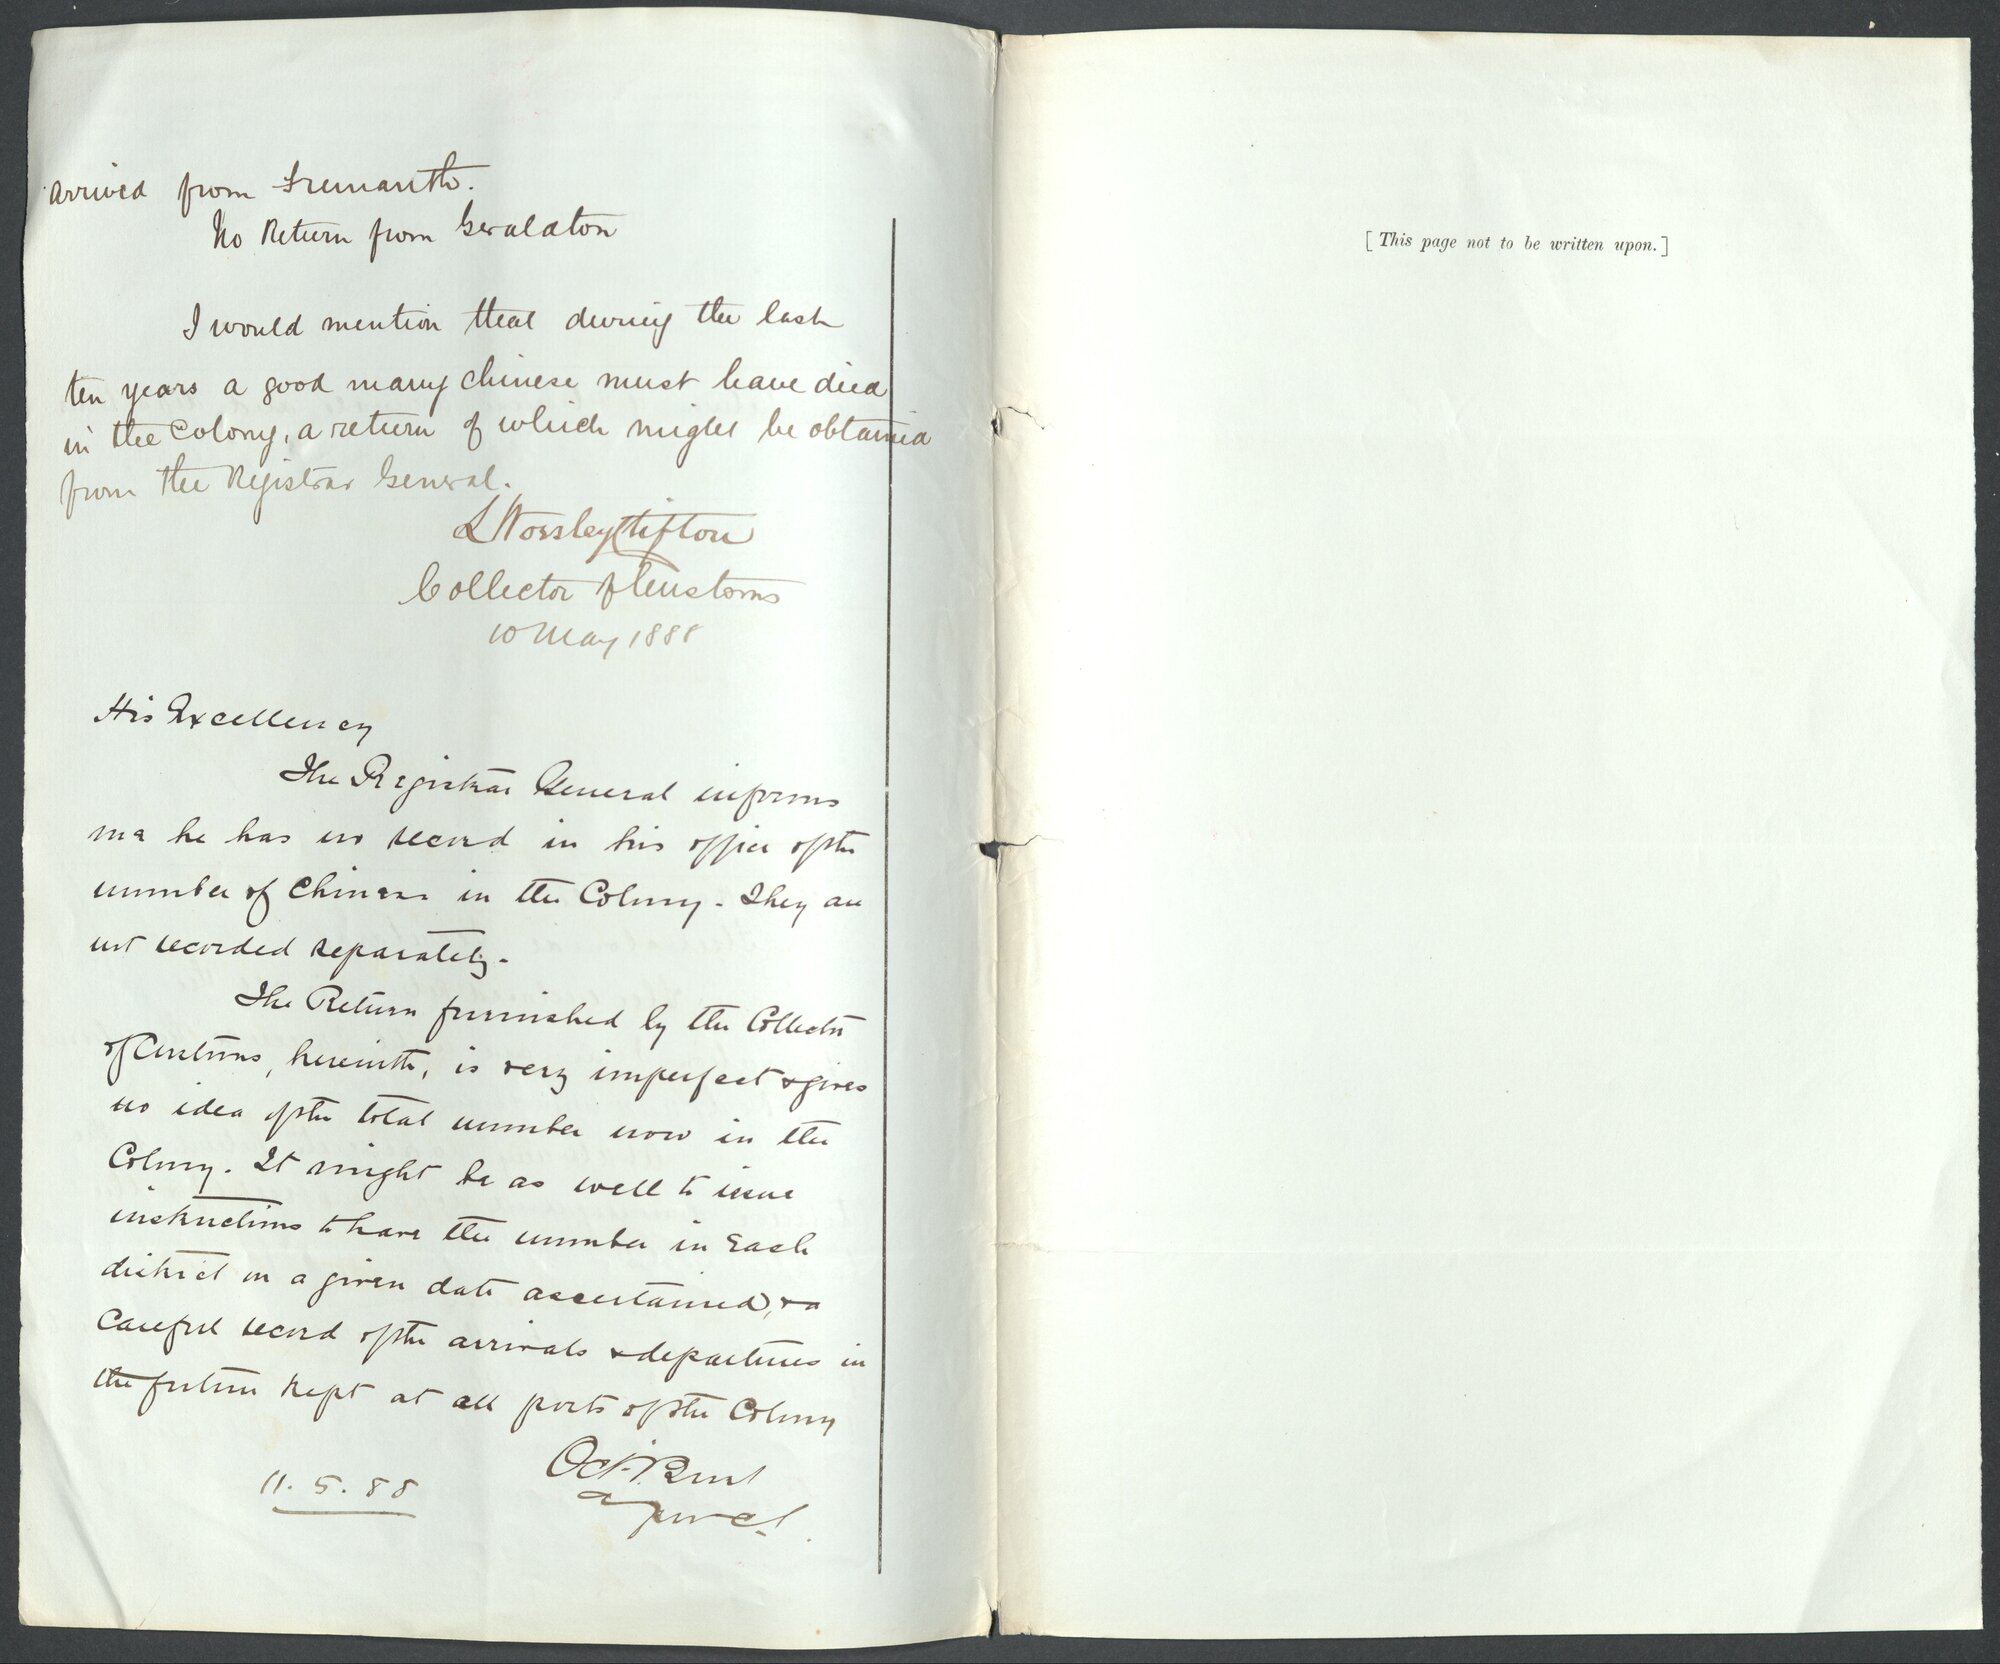 arrived from Fremantle.
No Return from Geraldton
I would mention that during the last
ten years a good many Chinese must have died
in the Colony, a return of which might be obtained
from the Registrar General.
L Worsley Clifton
Collector of Customs
10 May 1888
His Excellency
The Registrar General informs
me he has no record in his office of the
number of Chinese in the Colony - They are
not recorded separately.
The Return furnished by the Collector
of Customs, herewith, is very imperfect & gives
no idea of the total number now in the
Colony. It might be as well to issue
instructions to have the number in each
district on a given date ascertained, & a
careful record of the arrivals & departures in
the future kept at all ports of the Colony
Oct. Burt
11.5.88
[This page not to be written upon.]